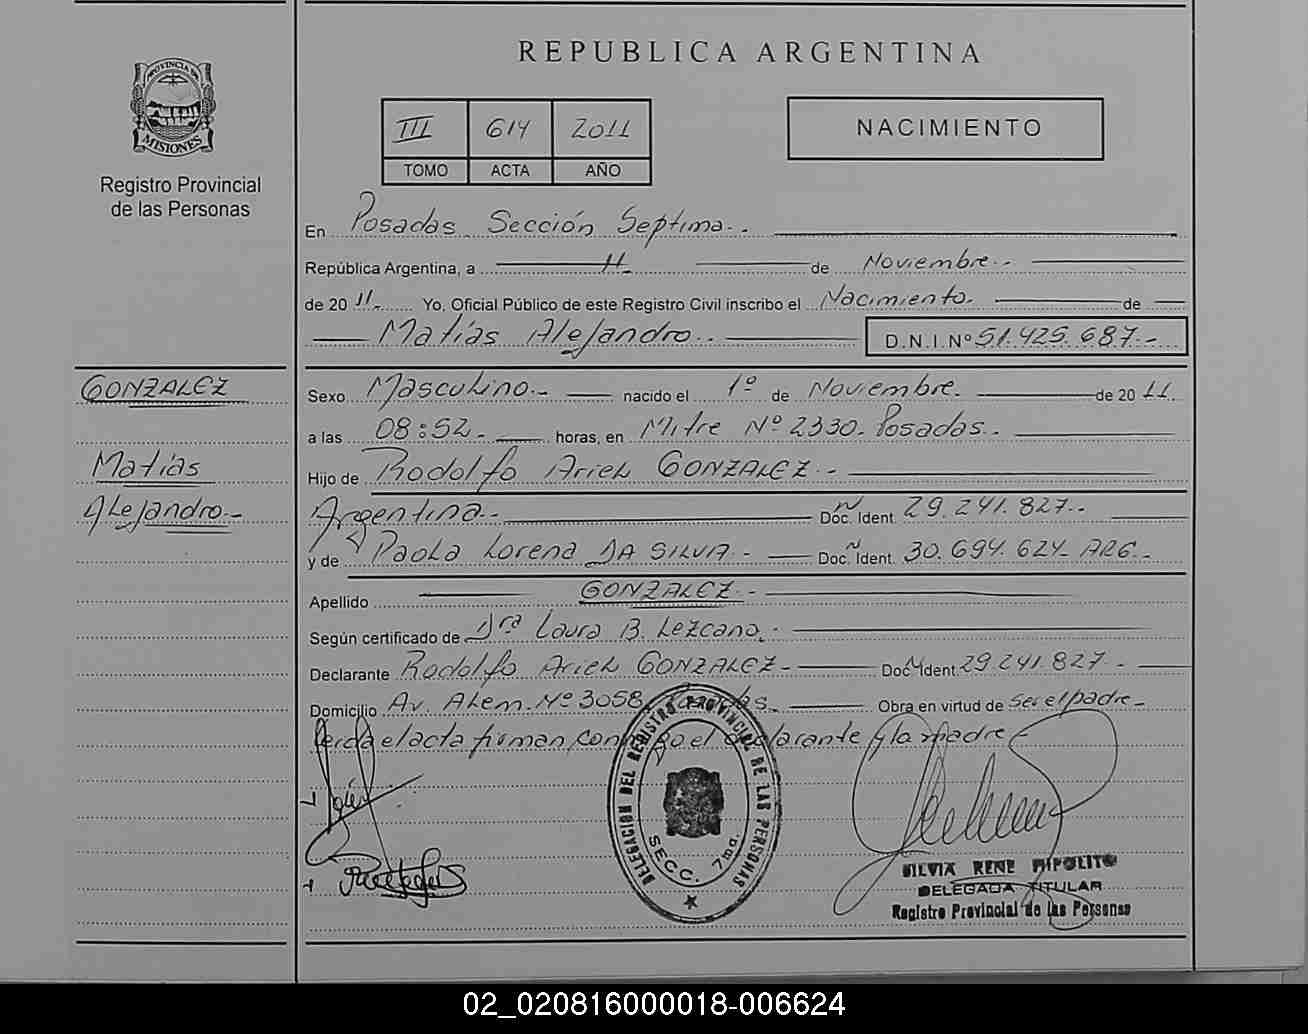 REPUBLICA ARGENTINA
PROVINCIA DE
MISIONES
Registro Provincial
de las Personas
III 614 2011
TOMO ACTA AÑO
NACIMIENTO
En Posadas Sección Septima.
República Argentina, a 11 de Noviembre.
de 20 11. Yo, Oficial Público de este Registro Civil inscribo el Nacimiento. de
Matías Alejandro. D.N.I.Nº 51.425.687.-
GONZALEZ
Matías
Alejandro.-
Sexo Masculino.- nacido el 1º de Noviembre. de 20 11.
a las 08:52.- horas, en Mitre Nº 2330. Posadas.
Hijo de Rodolfo Ariel GONZALEZ.-
Argentina.- Doc. Ident. 29.241.827.-
y de Paola Lorena DA SILVA.- Doc. Ident. 30.694.624- ARG.-
Apellido GONZALEZ.-
Según certificado de Dra Laura B. Lezcano.
Declarante Rodolfo Ariel GONZALEZ.- Doc. Ident. 29.241.827.-
Domicilio Av. Alem. Nº 3058. Posadas. Obra en virtud de ser el padre-
leida el acta firman conmigo el declarante y la madre-
DELEGACION DEL REGISTRO PROVINCIAL DE LAS PERSONAS
SECC. 7ma.
SILVIA RENE HIPOLITO
DELEGADA TITULAR
Registro Provincial de las Personas
02_020816000018-006624